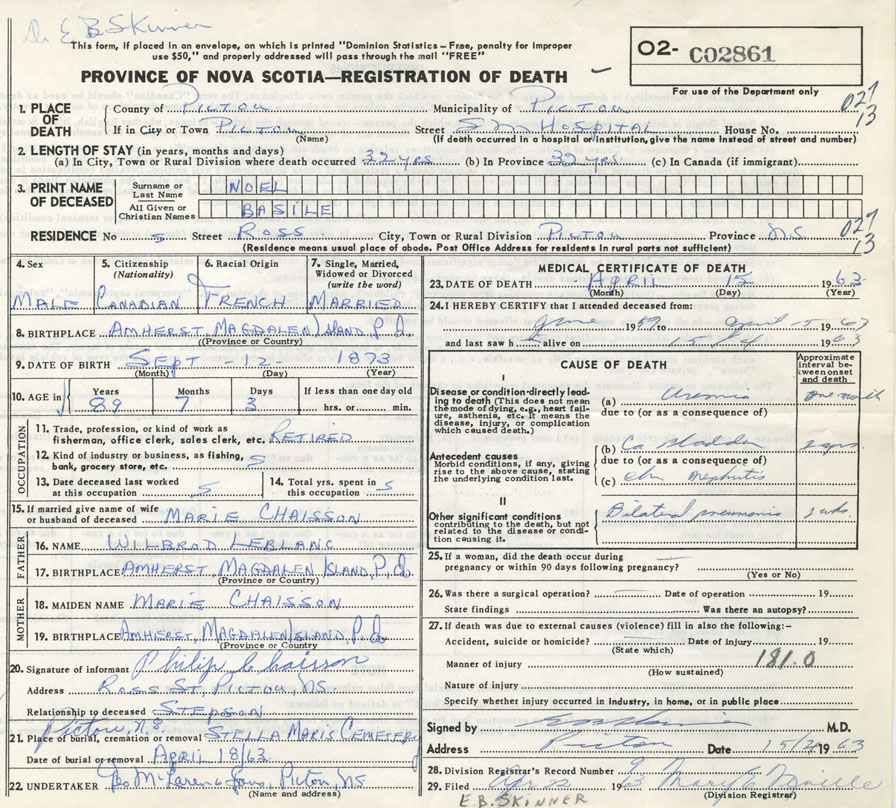 Dr E B Skinner
This form, if placed in an envelope, on which is printed "Dominion Statistics—Free, penalty for improper
use $50," and properly addressed will pass through the mail "FREE"
PROVINCE OF NOVA SCOTIA—REGISTRATION OF DEATH
02- C02861
For use of the Department only
027
13
1. PLACE OF DEATH
County of PICTOU Municipality of PICTOU
If in City or Town PICTOU Street S M HOSPITAL House No.
(Name) (If death occurred in a hospital or institution, give the name instead of street and number)
2. LENGTH OF STAY (in years, months and days)
(a) In City, Town or Rural Division where death occurred 32 yrs (b) In Province 32 yrs (c) In Canada (if immigrant)
3. PRINT NAME OF DECEASED
Surname or Last Name NOEL
All Given or Christian Names BASILE
RESIDENCE No 5 Street ROSS City, Town or Rural Division PICTOU Province NS
027
13
(Residence means usual place of abode. Post Office Address for residents in rural parts not sufficient)
4. Sex
MALE
5. Citizenship (Nationality)
CANADIAN
6. Racial Origin
FRENCH
7. Single, Married, Widowed or Divorced (write the word)
MARRIED
8. BIRTHPLACE AMHERST MAGDALEN ISLAND P.Q.
(Province or Country)
9. DATE OF BIRTH SEPT - 12 - 1873
(Month) (Day) (Year)
10. AGE in
Years Months Days If less than one day old
89 7 3 hrs. or min.
OCCUPATION
11. Trade, profession, or kind of work as
fisherman, office clerk, sales clerk, etc. RETIRED
12. Kind of industry or business, as fishing,
bank, grocery store, etc.
13. Date deceased last worked
at this occupation
14. Total yrs. spent in
this occupation
15. If married give name of wife
or husband of deceased MARIE CHAISSON
FATHER
16. NAME WILBROD LEBLANC
17. BIRTHPLACE AMHERST MAGDALEN ISLAND, P.Q.
(Province or Country)
MOTHER
18. MAIDEN NAME MARIE CHAISSON
19. BIRTHPLACE AMHERST, MAGDALEN ISLAND P.Q.
(Province or Country)
20. Signature of informant Philip Chaisson
Address ROSS ST, PICTOU, NS.
Relationship to deceased STEPSON
Pictou, N.S.
21. Place of burial, cremation or removal STELLA MARIS CEMETERY
Date of burial or removal APRIL 18/63
22. UNDERTAKER Geo McLaren & Sons, Pictou, NS
(Name and address)
MEDICAL CERTIFICATE OF DEATH
23. DATE OF DEATH APRIL 15 1963
(Month) (Day) (Year)
24. I HEREBY CERTIFY that I attended deceased from:
June 1959 to April 1963
and last saw h alive on 15/4 1963
CAUSE OF DEATH
Approximate interval between onset and death
I
Disease or condition directly leading to death (This does not mean the mode of dying, e.g., heart failure, asthenia, etc. It means the disease, injury, or complication which caused death.)
(a) Uremia one month
due to (or as a consequence of)
Antecedent causes
Morbid conditions, if any, giving rise to the above cause, stating the underlying condition last.
(b) Ca bladder 2 yrs.
due to (or as a consequence of)
(c) Chr nephritis
II
Other significant conditions
contributing to the death, but not related to the disease or condition causing it.
Bilateral pneumonia 2 wks.
25. If a woman, did the death occur during
pregnancy or within 90 days following pregnancy?
(Yes or No)
26. Was there a surgical operation? Date of operation 19
State findings Was there an autopsy?
27. If death was due to external causes (violence) fill in also the following:-
Accident, suicide or homicide? Date of injury 19
(State which)
Manner of injury 181.0
(How sustained)
Nature of injury
Specify whether injury occurred in Industry, in home, or in public place
Signed by M.D.
Address Pictou Date 15/4 1963
28. Division Registrar's Record Number 9
29. Filed Apr 22 1963
(Division Registrar)
E.B. SKINNER